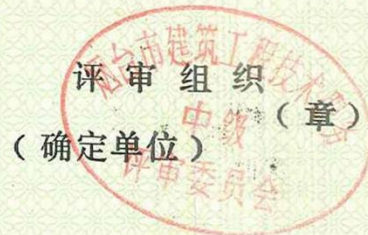 评审组织
（章）
（确定单位）
烟台市建筑工程技术职务
中级
评审委员会